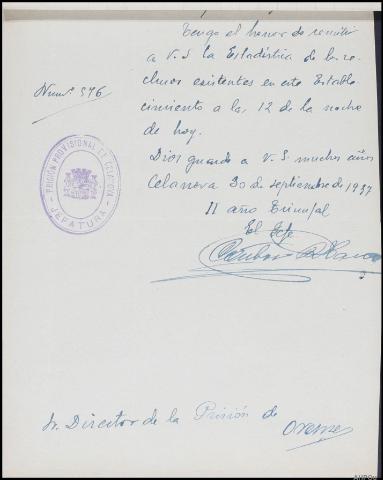 Tengo el honor de remitir
a V. S la Estadistica de los re-
clusos existentes en este Estable-
cimiento a las 12 de la noche
de hoy.
Dios guarde a V. S. muchos años
Celanova 30 de septiembre de 1937
II año Triunfal
El Jefe
Numº 576
PRISIÓN PROVISIONAL DE CELANOVA
JEFATURA
Sr. Director de la Prisión de
Orense